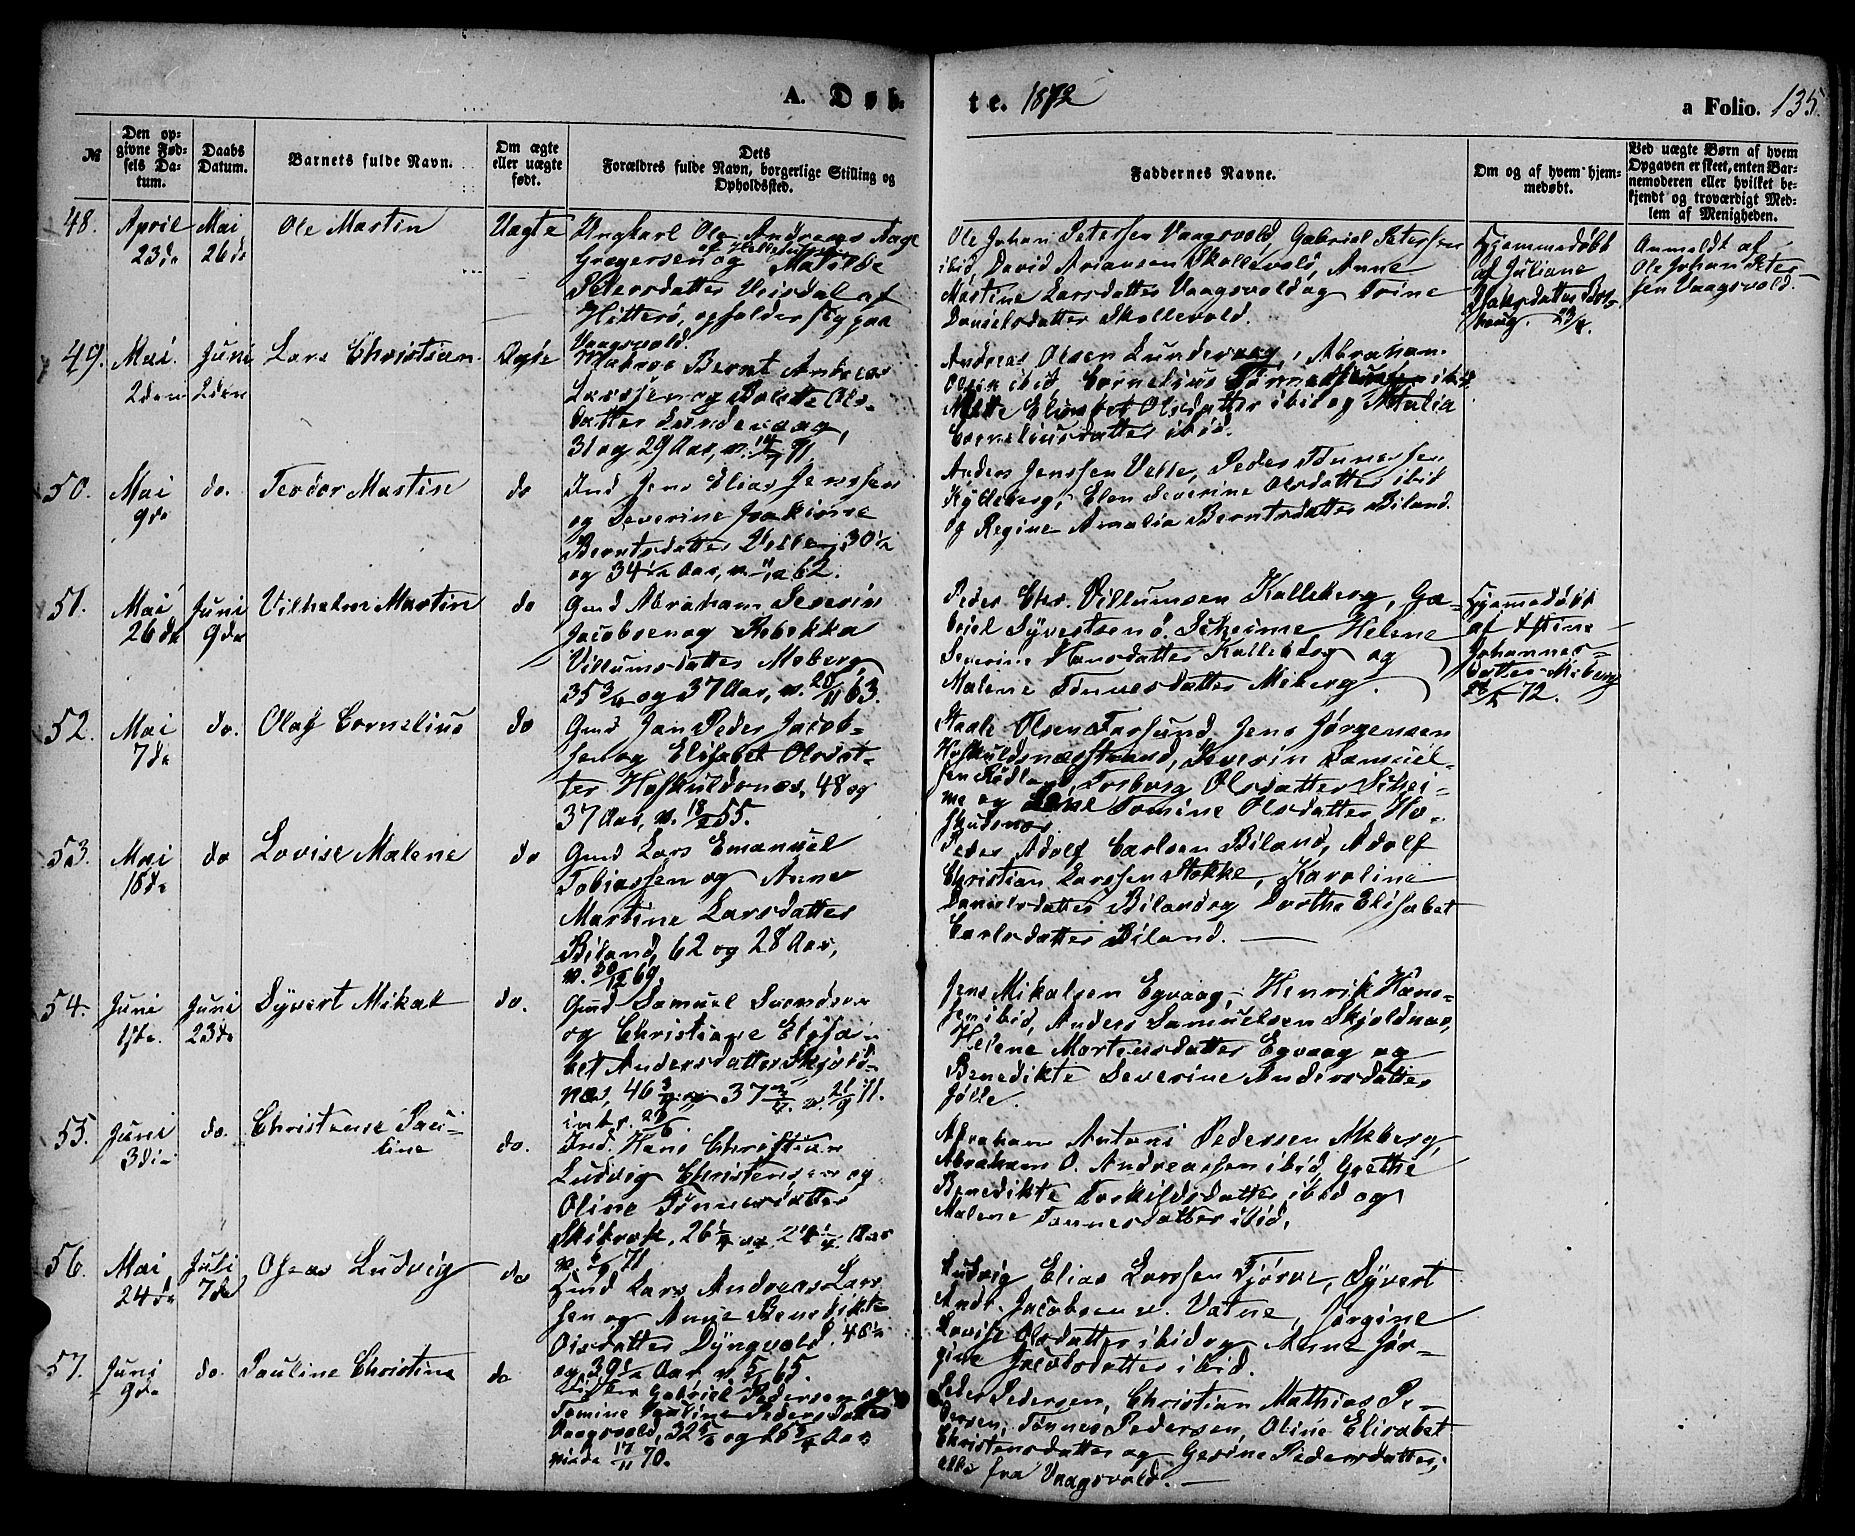 A. Døb- te. 1872 a Folio. 135.
№
Den op-
givne Fød-
sels Da-
tum.
Daabs
Datum.
Barnets fulde Navn.
Om ægte
eller uægte
født.
Dets
Forældres fulde Navn, borgerlige Stilling og
Opholdssted.
Faddernes Navne.
Om og af hvem hjem-
medøbt.
Ved uægte Børn af hvem
Opgaven er skeet, enten Bar-
nemoderen eller hvilket be-
kjendt og troværdigt Med-
lem af Menigheden.
48. April Mai Ole Martin Uægte
23de 26de
Ungkarl Ole Andreas Aage
Gregersen og Matilde
Petersdatter Veisdal af
Hitterø, opholder sig paa
Vaagsvold.
Ole Johan Petersen Vaagsvold, Gabriel Petersen
ibid, David Ariansen Skollevold, Anne
Martine Larsdatter Vaagsvold og Trine
Danielsdatter Skollevold.
Hjemmedøbt
af Juliane
Anmeldt af
Ole Johan Peter-
sen Vaagsvold.
49. Mai Juni Lars Christian Ægte
2den 2den
Matros Bernt Andreas
Larssen og Bolette Ols-
datter Lundevaag,
31 og 29 Aar, v. 71.
Andreas Olsen Lundevaag, Abraham
Olsen ibid, Cornelius Tønnessen ibid
Mette Elisabet Olsdatter ibid og Natalia
Corneliusdatter ibid.
50. Mai do. Teodor Martin do
9de
Ind Jens Elias Jenssen
og Severine Joakime
Berntsdatter Velle, 30½
og 34½ Aar, v. 62.
Anders Jenssen Velle, Peder Tønnessen
Kolleberg, Elen Severine Olsdatter ibid
og Regine Amalia Berntsdatter Biland.
51. Mai Juni Vilhelm Martin do
26de 9de
Gmd Abraham Severin
Jacobsen og Rebekka
Villumsdatter Meberg,
35¾ og 37 Aar, v. 63.
Peder Chr. Villumsen Kolleberg, Ga-
briel Syvertsen ø. Skeime, Helene
Severine Hansdatter Kolleberg og
Malene Tønnesdatter Meberg.
Hjemmedøbt
af Stine
Johannes-
datter Meberg
72.
52. Mai do. Olaf Cornelius do
7de
Gmd Jan Peder Jacob-
sen og Elisabet Olsdat-
ter Hoskuldsnæs, 48 og
37 Aar, v. 55.
Staale Olsen Farsund, Jens Jørgensen
Hoskuldsnæsstrand, Severin Samuel-
sen Rødland, Torborg Olsdatter Skei-
me og Tomine Olsdatter Ho-
skudsnæs.
53. Mai do Lovise Malene do
18de
Gmd Lars Emanuel
Tobiassen og Anne
Martine Larsdatter
Biland, 62 og 28 Aar,
v. 30/12 69.
Peder Adolf Carlsen Biland, Adolf
Christian Larssen Stokke, Karoline
Danielsdatter Biland og Dorthe Elisabet
Carlsdatter Biland.
54. Juni Juni Syvert Mikal do.
1ste. 23de
Gmd Samuel Svendsen
og Christiane Elisa-
bet Andersdatter Skjold-
næs, 46¾ og 37 v. 21/9 71.
Jens Mikalsen Egvaag, Henrik Han-
sen ibid, Anders Samuelsen Skjoldnæs,
Helene Mortensdatter Egvaag og
Benedikte Severine Andersdatter
Jølle.
55. Juni do. Christense Pau- do.
3die line
Ind. Hans Christian
Ludvig Christensen og
Oline Tønnesdatter
Skibrok, 26¼ og 24¼ Aar
v. 71
Abraham Antoni Pedersen Meberg,
Abraham O. Andreassen ibid, Grethe
Benedikte Torkildsdatter ibid og
Malene Tønnesdatter ibid.
56. Mai Juli Oseas Ludvig do
24de 7de
Gmd Lars Andreas Lars-
sen og Anne Benedikte
Olsdatter Dyngvold, 40½
og 39½ Aar, v. 65.
Ludvig Elias Larssen Tjørve, Syvert
Andr. Jacobsen v. Vatne, Jørgine
Lovise Olsdatter ibid og Anne Jør-
gine Jacobsdatter ibid.
57. Juni do. Pauline Christine do
9de
Gabriel Pedersen og
Tomine Pauline Pedersdatter
Vaagsvold, 32 og 25¾ Aar
viede 17/11 70.
Peder Pedersen, Christian Mathias Pe-
dersen, Tønnes Pedersen, Oline Elisabet
Christensdatter og Gesine Pedersdatter,
alle fra Vaagsvold.